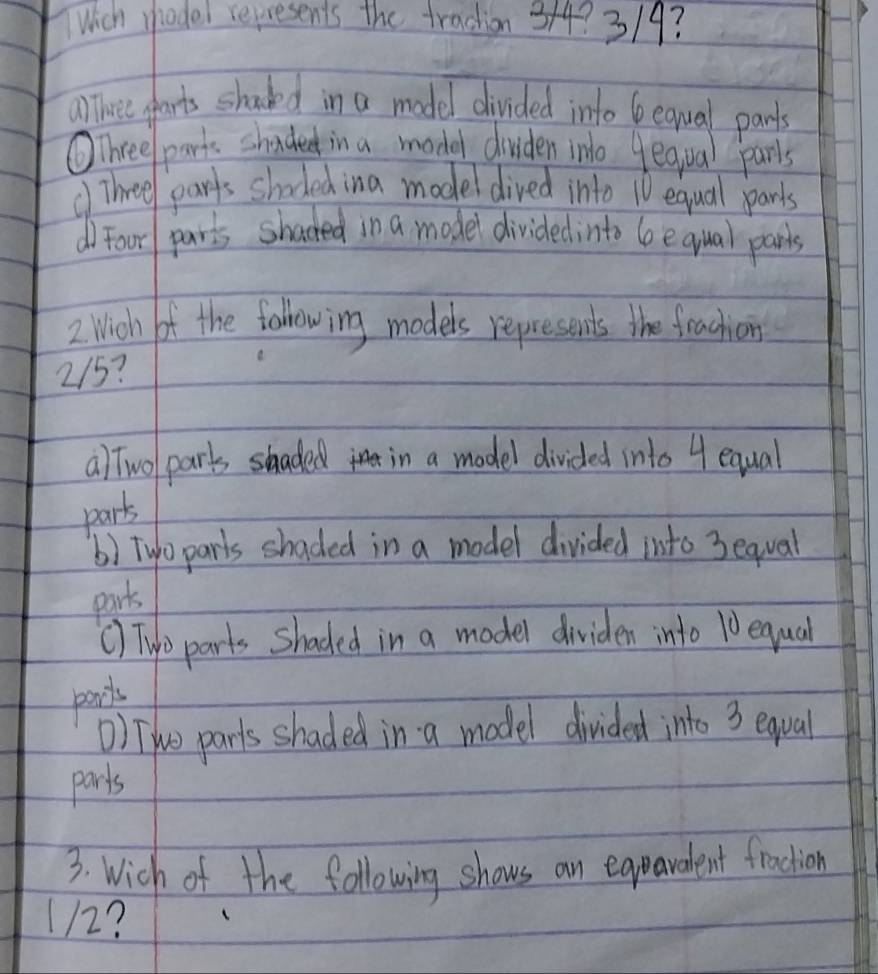 1 Wich model represents the fraction 3/4? 3/4?
a) Three parts shaded in a model divided into 6 equal parts
b) Three parts shaded in a model dividen into 4 equal parts
c) Three parts shaded in a model dived into 10 equal parts
d) Four parts shaded in a model divided into 6 equal parts
2. Wich of the following models represents the fraction
2/5?
a) Two parts shaded in a model divided into 4 equal
parts
b) Two parts shaded in a model divided into 3 equal
parts
C) Two parts Shaded in a model dividen into 10 equal
parts
D) Two parts shaded in a model divided into 3 equal
parts
3. Wich of the following shows an equavalent fraction
1/2?